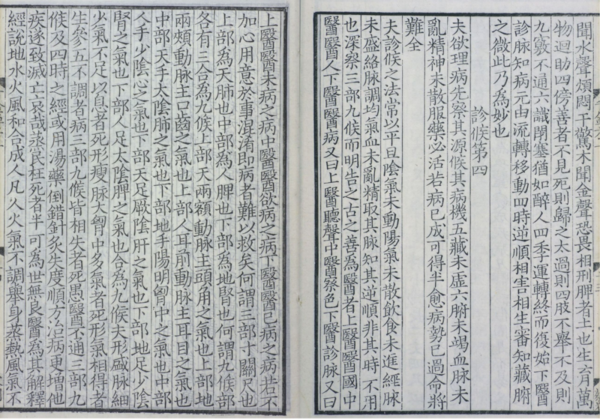 聞水聲煩悶干驚木聞金聲恐畏相刑脾者土也生育萬
物迴助四傍善者不見死則歸之太過則四肢不舉不及則
九竅不通六識閉塞猶如醉人四季運轉終而復始下醫
診脉知病元由流轉移動四時逆順相害相生審知藏腑
之微此乃為妙也
診候第四
夫欲理病先察其源候其病機五藏未虛六腑未竭血脉未
亂精神未散服藥必活若病已成可得半愈病勢已過命將
難全
夫診候之法常以平旦陰氣未動陽氣未散飲食未進經脉
未盛絡脉調均氣血未亂精取其脉知其逆順非其時不用
也深察三部九候而明告之古之善為醫者上醫醫國中
醫醫人下醫醫病又曰上醫聽聲中醫察色下醫診脉又曰
上醫醫未病之病中醫醫欲病之病下醫醫已病之病若不
加心用意於事混淆即病者難以救矣何謂三部寸關尺也
上部為天肺也中部為人脾也下部為地腎也何謂九候部
各有三合為九候上部天兩額動脉主頭角之氣也上部地
兩頰動脉主口齒之氣也上部人耳前動脉主耳目之氣也
中部天手太陰肺之氣也中部地手陽明胷中之氣也中部
人手少陰心之氣也下部天足厥陰肝之氣也下部地足少陰
腎之氣也下部人足太陰脾之氣也合為九候夫形盛脉細
少氣不足以息者死形瘦脉大胷中多氣者死形氣相得者
生參五不調者病三部九候皆相失者死愚醫不通三部九
候及四時之經或用湯藥倒錯針灸失度順方治病更增他
疾遂致滅亡哀哉烝民枉死者半可為世無良醫為其解釋
經說地水火風和合成人凡人火氣不調舉身蒸熱風氣不